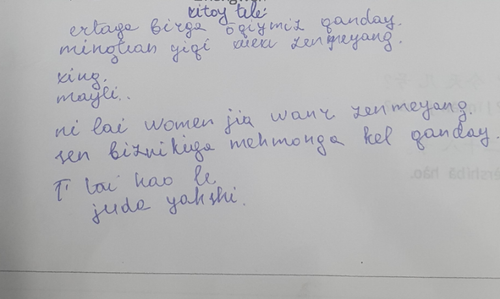 xitoy tili:
ertaga birga öqiymiz qanday.
mingtian yiqi xuexi zenmeyang.
xing.
mayli..
ni lai women jia wanr zenmeyang.
sen biznikiga mehmonga kel qanday.
T lai hao le
juda yahshi.
rshíbā hào.